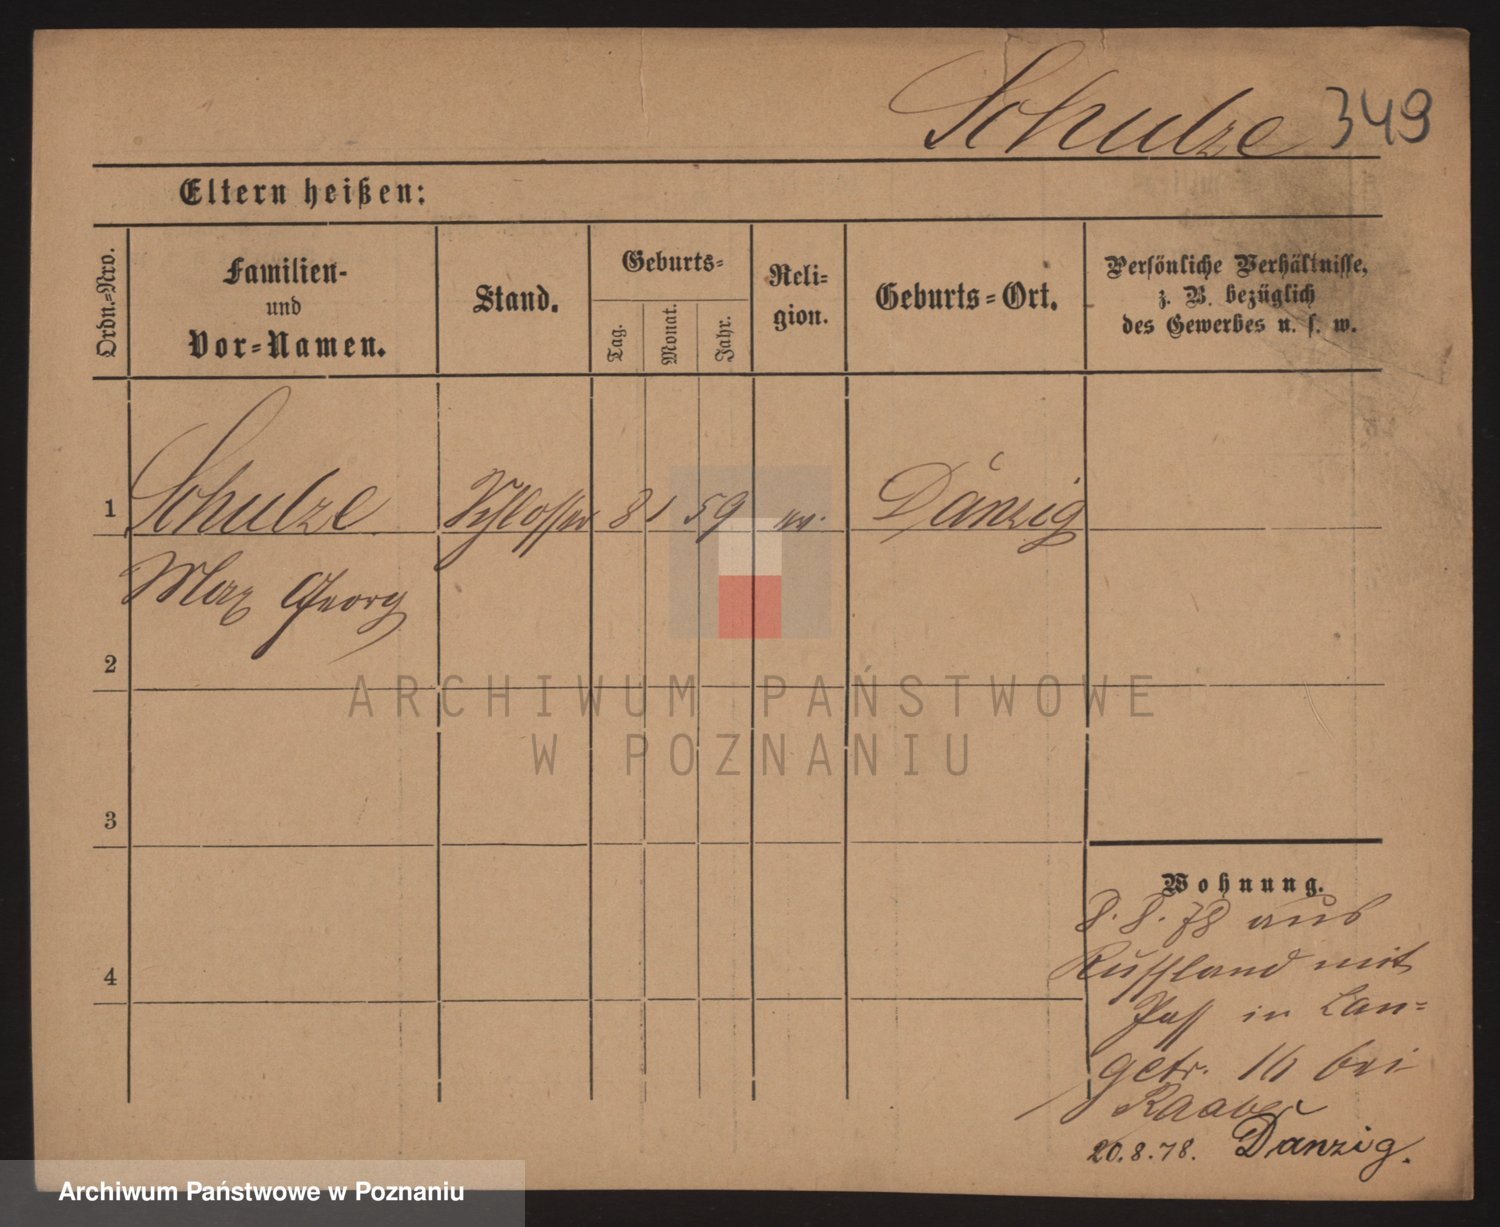 Schulze 349
Eltern heißen:
Ordn.=Nro.
Familien-
und
Vor=Namen.
Stand.
Geburts=
Tag.
Monat.
Jahr.
Reli=
gion.
Geburts=Ort.
Persönliche Verhältnisse,
z. B. bezüglich
des Gewerbes u. s. w.
1 Schulze Schlosser 8 1 59 ev. Danzig
Max Georg
2
3
4
Wohnung.
8. 8. 78 aus
Russland mit
Pass in Lan=
getr. 16 bei
20.8.78. Danzig.
ARCHIWUM PAŃSTWOWE
W POZNANIU
Archiwum Państwowe w Poznaniu